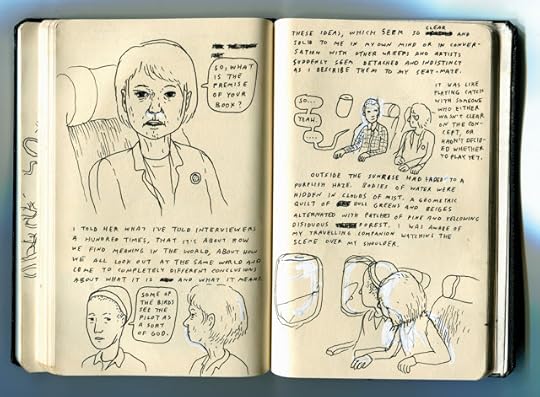 SO, WHAT
IS THE
PREMISE
OF YOUR
BOOK?
I TOLD HER WHAT I'VE TOLD INTERVIEWERS
A HUNDRED TIMES, THAT IT'S ABOUT HOW
WE FIND MEANING IN THE WORLD, ABOUT HOW
WE ALL LOOK OUT AT THE SAME WORLD AND
COME TO COMPLETELY DIFFERENT CONCLUSIONS
ABOUT WHAT IT IS AND WHAT IT MEANS.
SOME OF
THE BIRDS
SEE THE
PILOT AS
A SORT
OF GOD.
THESE IDEAS, WHICH SEEM SO CLEAR AND
SOLID TO ME IN MY OWN MIND OR IN CONVER-
SATION WITH OTHER WRITERS AND ARTISTS
SUDDENLY SEEM DETACHED AND INDISTINCT
AS I DESCRIBE THEM TO MY SEAT-MATE.
SO...
YEAH.
...
IT WAS LIKE
PLAYING CATCH
WITH SOMEONE
WHO EITHER
WASN'T CLEAR
ON THE CON-
CEPT, OR
HADN'T DECID-
ED WHETHER
TO PLAY YET.
OUTSIDE THE SUNROSE HAD FADED TO A
PURPLISH HAZE. BODIES OF WATER WERE
HIDDEN IN CLOUDS OF MIST. A GEOMETRIC
QUILT OF DULL GREENS AND BEIGES
ALTERNATED WITH PATCHES OF PINE AND YELLOWING
DISIDUOUS FOREST. I WAS AWARE OF
MY TRAVELLING COMPANION WATCHING THE
SCENE OVER MY SHOULDER.